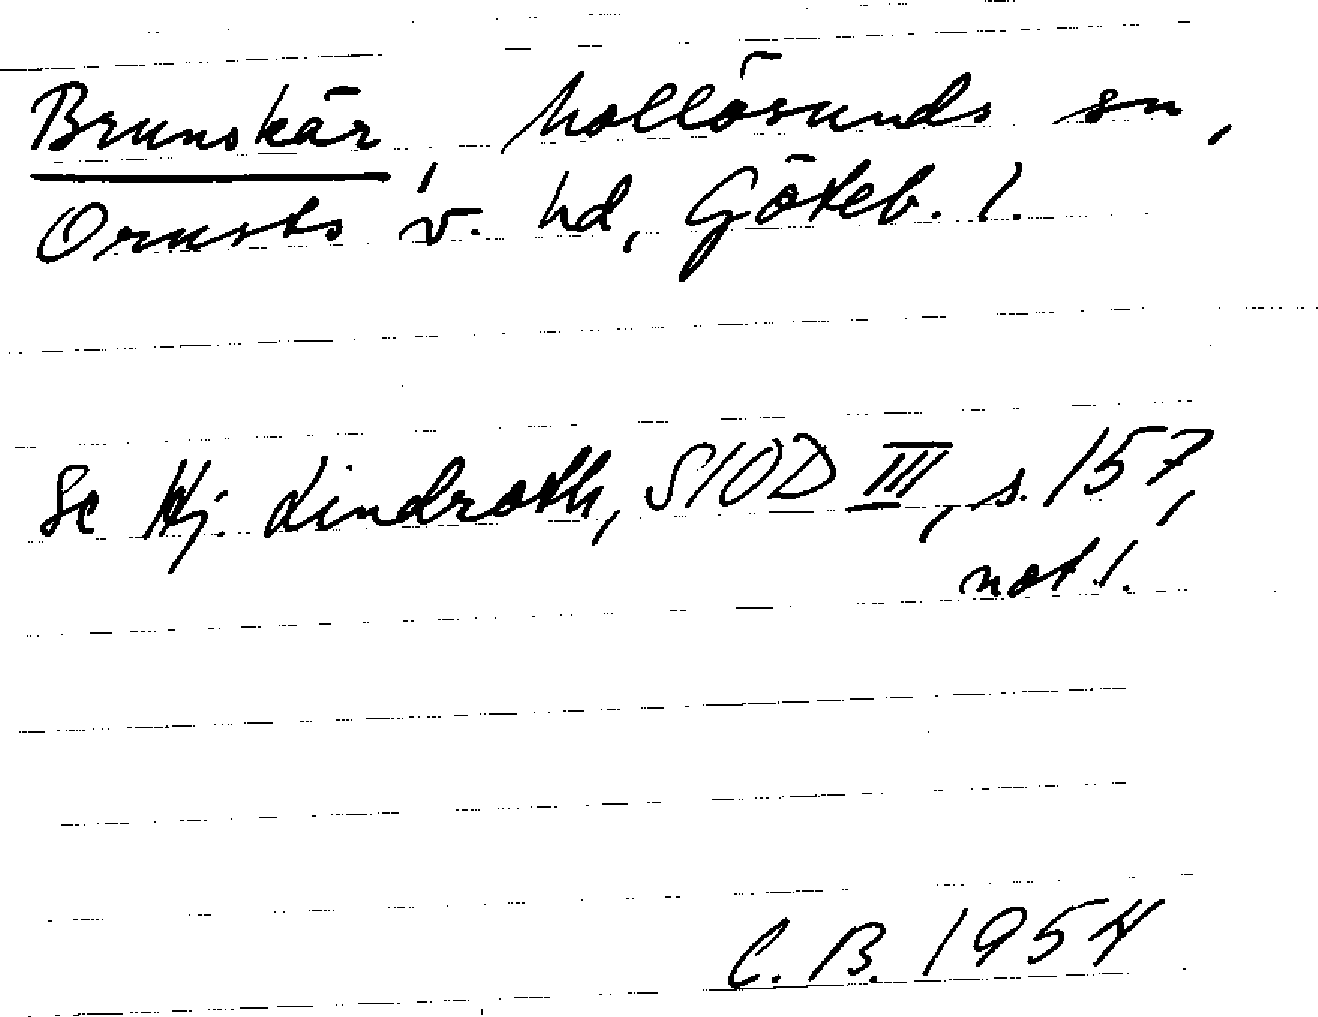 Brunskär, Mollösunds sn,
Orusts v. hd, Göteb. l.
Se Hj. Lindroth, SIOD III, s. 157,
not 1.
C. B. 1954